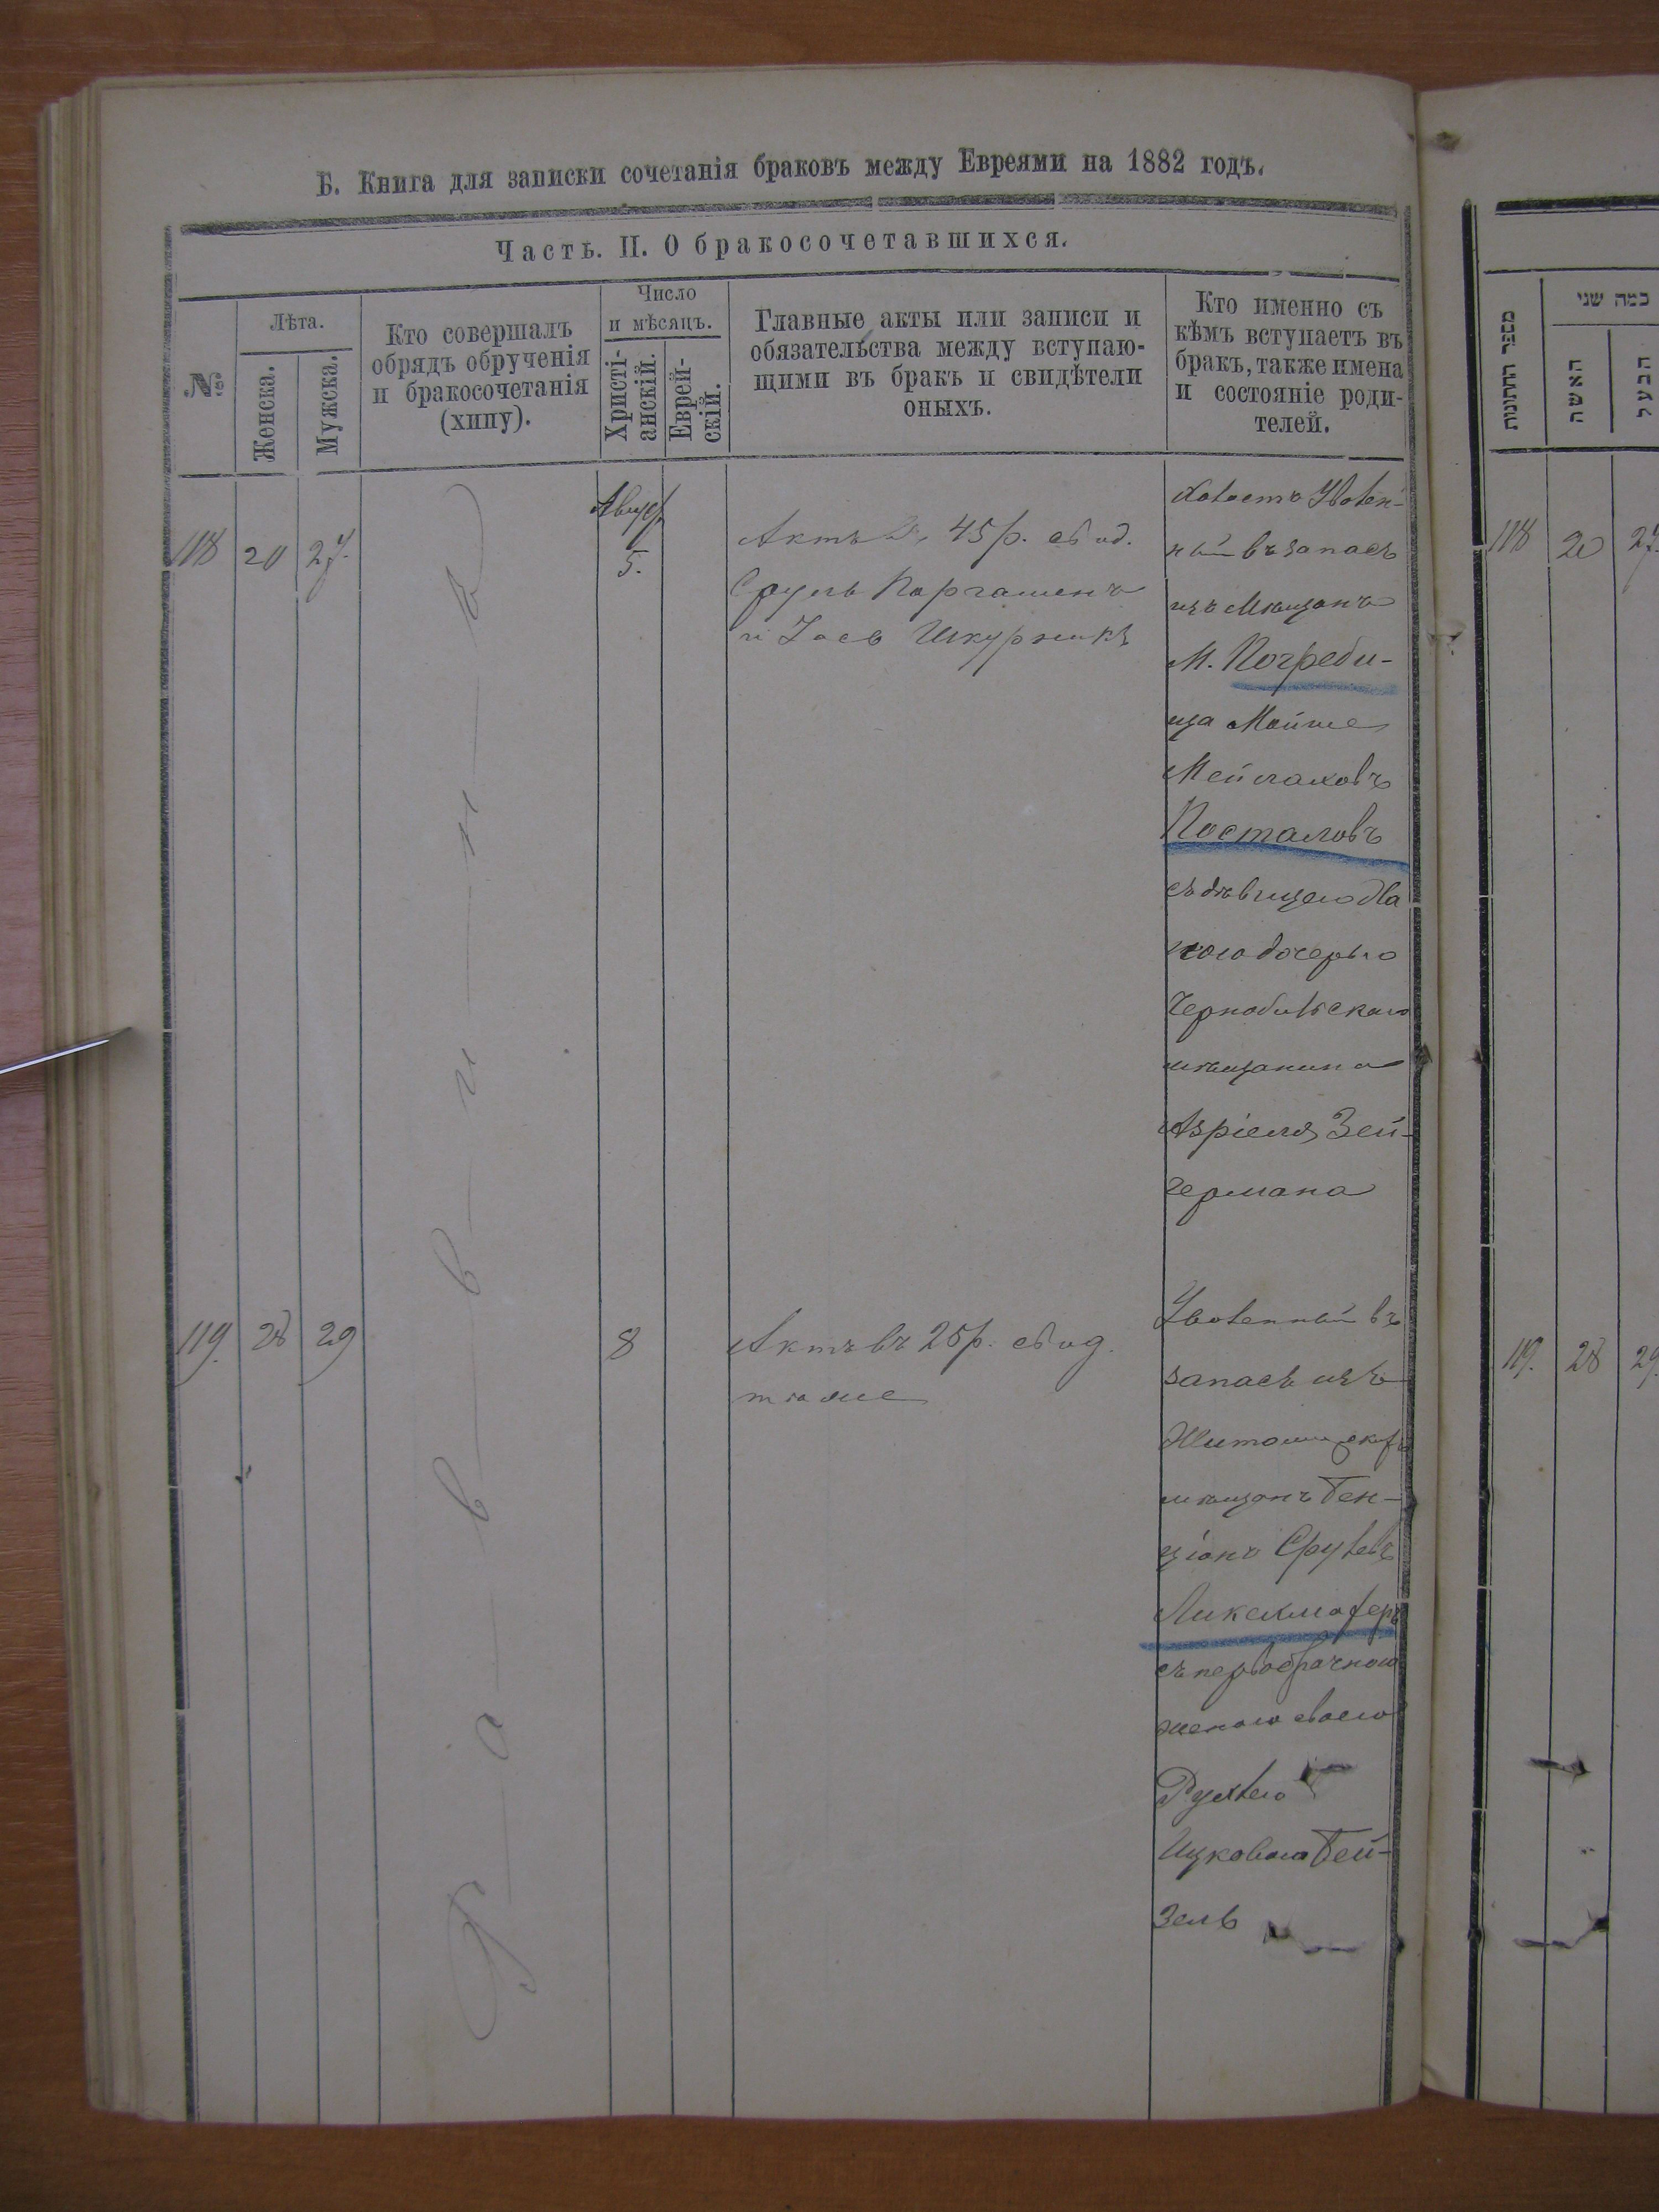 Б. Книга для записки сочетанія браковъ между Евреями на 1882 годъ.
Часть. II. О бракосочетавшихся.
№
Лѣта.
Женска.
Мужска.
Кто совершалъ
обрядъ обрученія
и бракосочетанія
(хупу).
Число
и мѣсяцъ.
Христі-
анскій.
Еврей-
скій.
Главные акты или записи и
обязательства между вступаю-
щими въ бракъ и свидѣтели
оныхъ.
Кто именно съ
кѣмъ вступаетъ въ
бракъ, также имена
и состояніе роди-
телей.
118
20
27.
Август
5.
Актъ 45 р. свид.
Сруль
и Шкурникъ
Холостъ Уволен-
ный въ запасъ
изъ Мѣщанъ
М. Погреби-
ща Мойше
Мейлаховъ
Посталовъ
съ дѣвицею Ха
ною дочерью
Чернобильскаго
мѣщанина
Азріеля Зей-
германа
119.
28
29
8
Актъ въ 25 р. свид.
тѣ же
Уволенный въ
запасъ изъ
мѣщанъ Бен-
ціонъ Срулевъ
съ первобрачною
женою своею
Рухлею
Ицковою Бей-
зель
Раввинъ
מספר החתונות
כמה שני
האשה
הבעל
118
20
27.
119.
28
29.